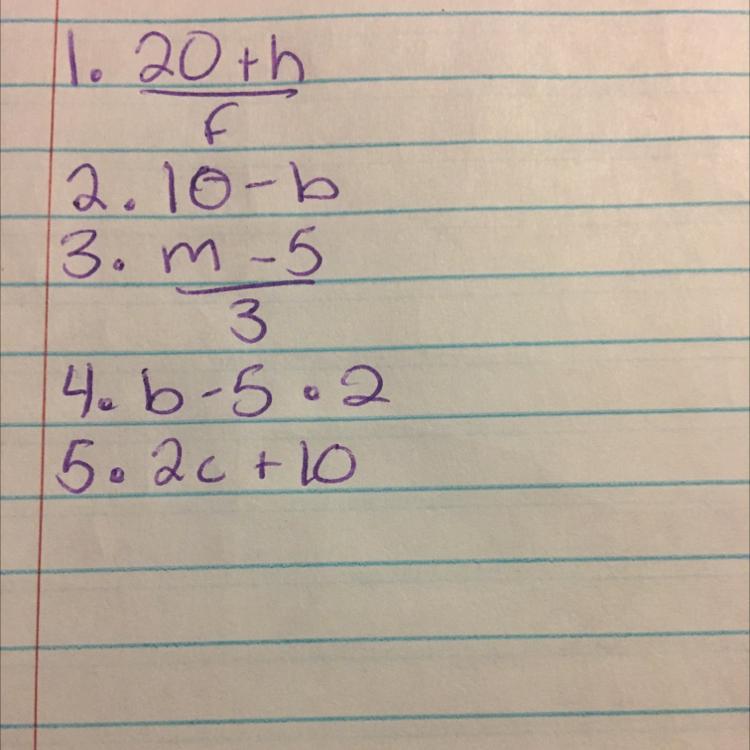 1. 20 + h
f
2. 10 - b
3. m - 5
3
4. b - 5 • 2
5. 2c + 10